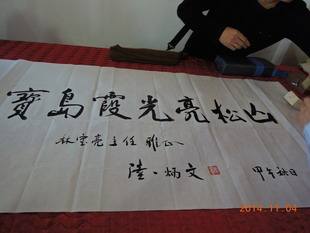 寶島霞光亮松山
林雲亮主任 雅正
陸·炳文
甲午秋日
2014.11.04